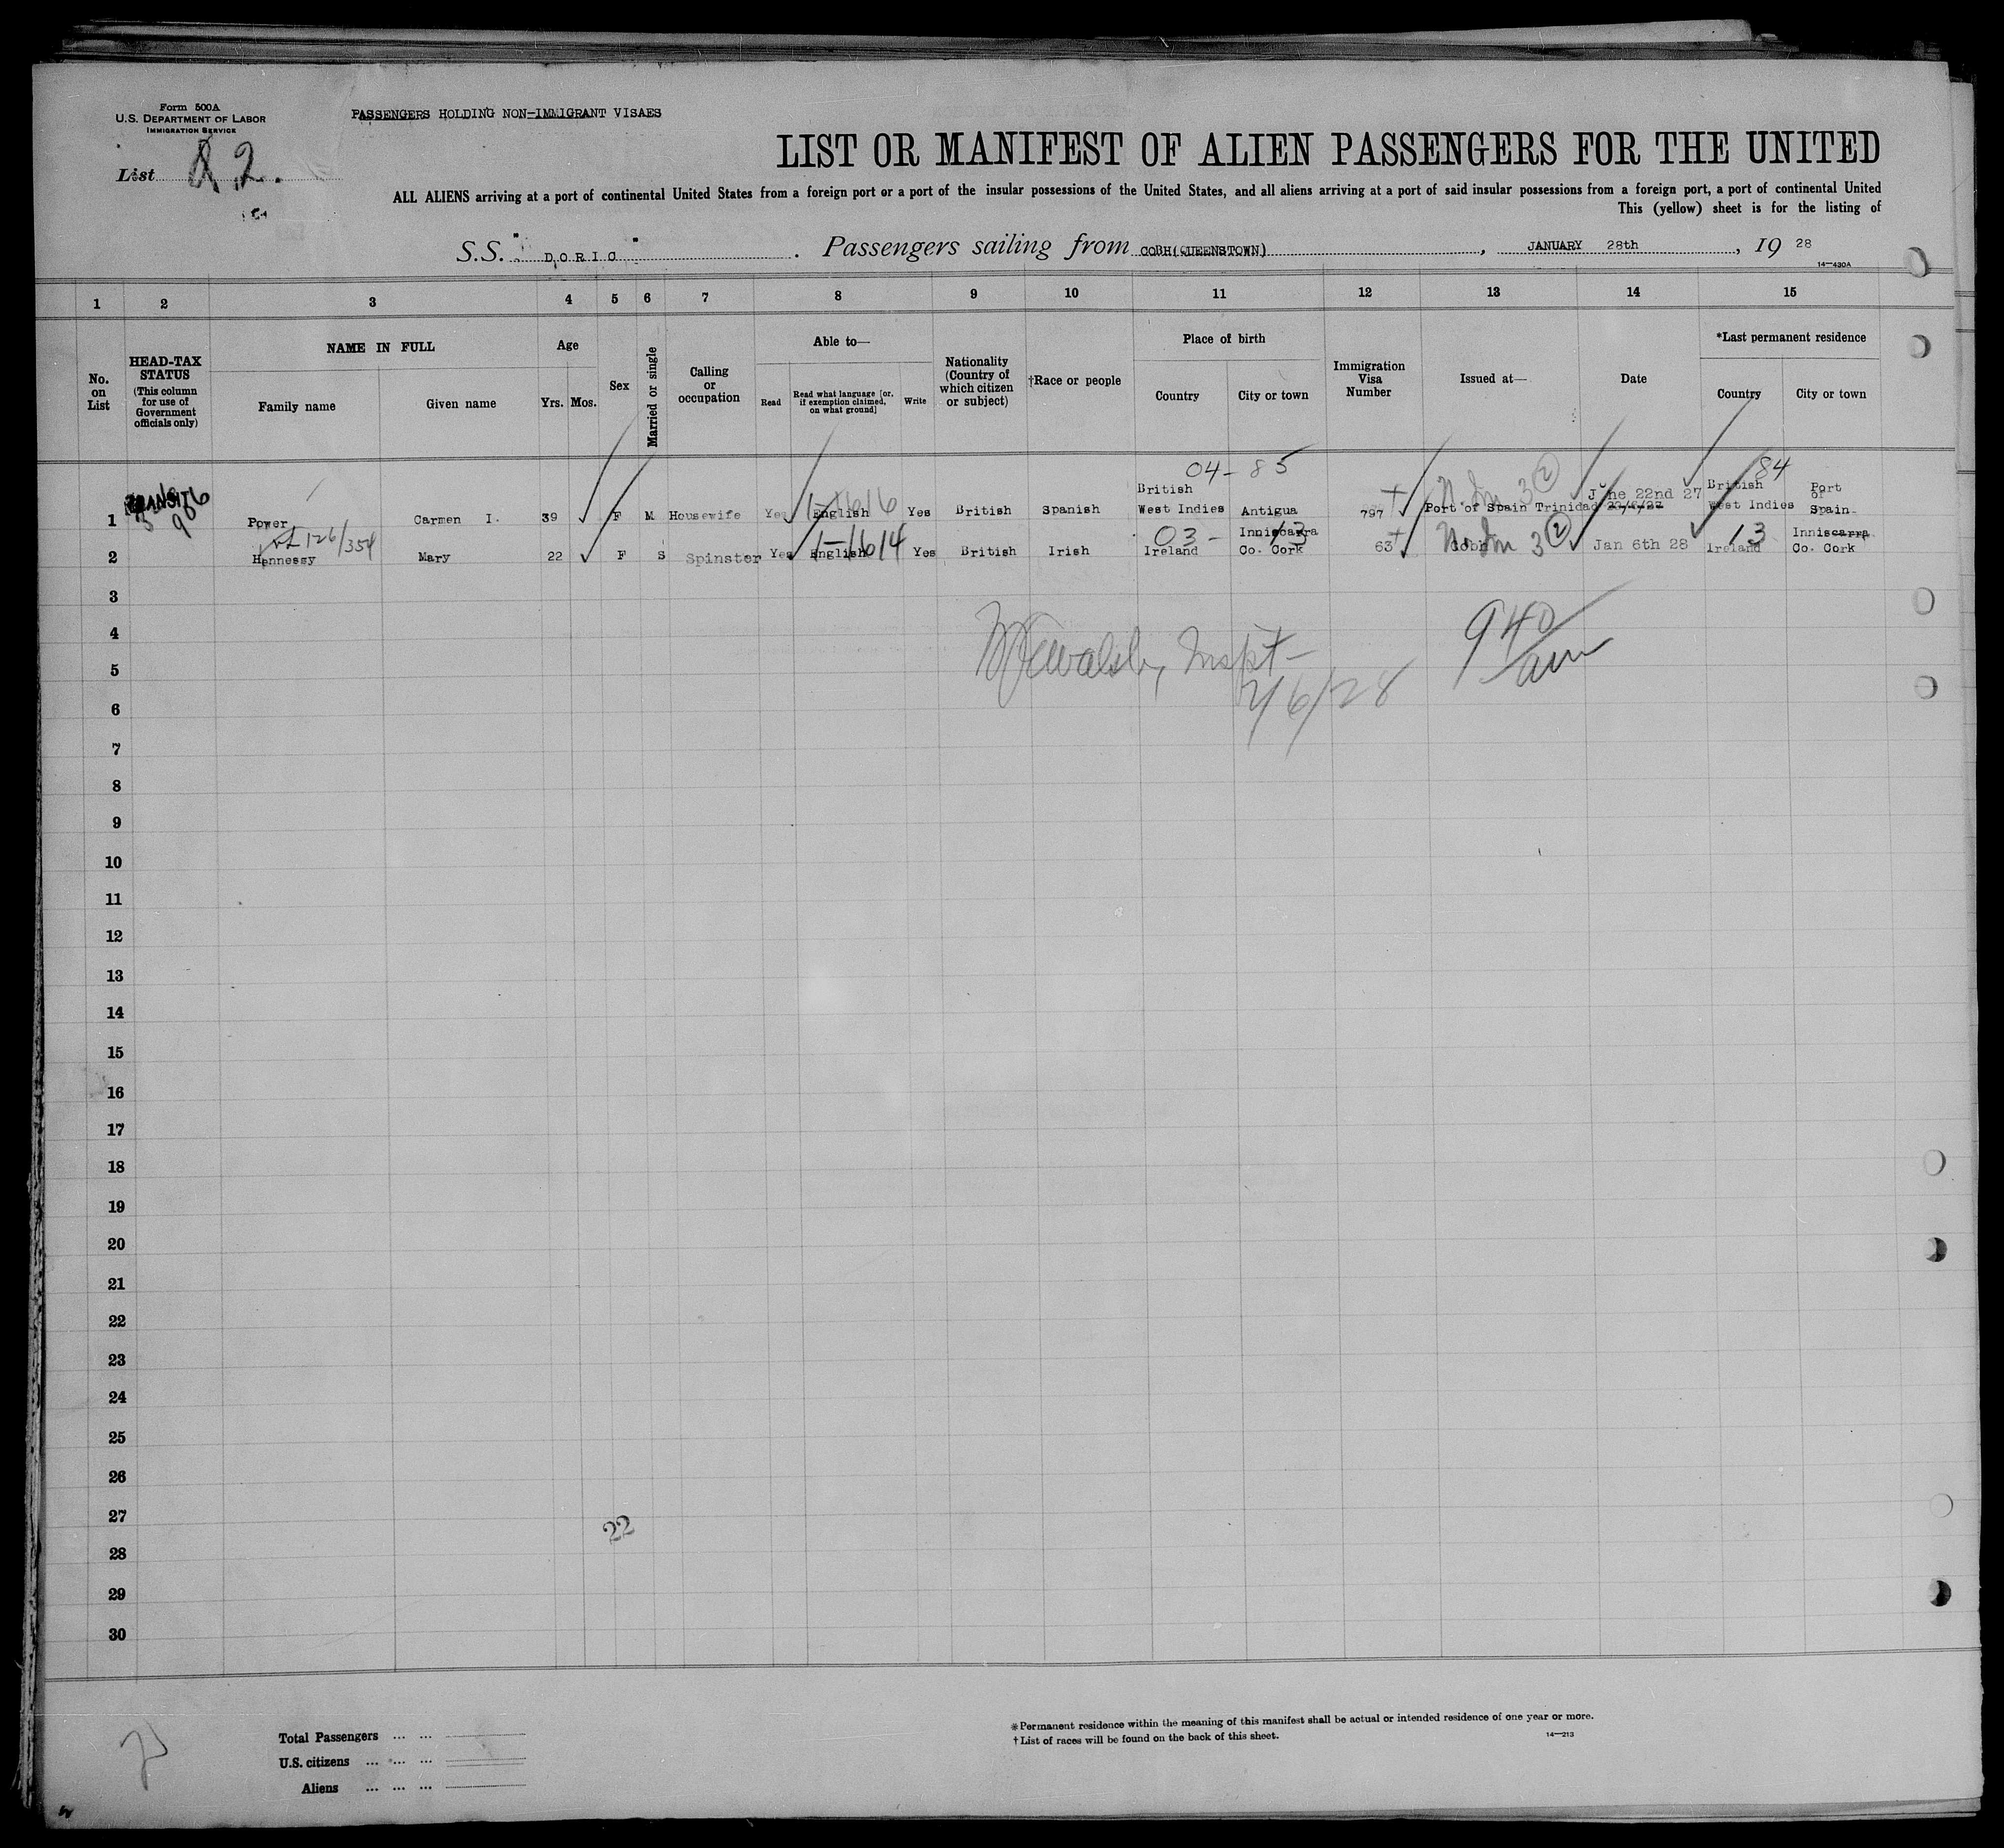 Form 500A
U.S. DEPARTMENT OF LABOR
IMMIGRATION SERVICE
PASSENGERS HOLDING NON-IMMIGRANT VISAES
LIST OR MANIFEST OF ALIEN PASSENGERS FOR THE UNITED
List 2.
ALL ALIENS arriving at a port of continental United States from a foreign port or a port of the insular possessions of the United States, and all aliens arriving at a port of said insular possessions from a foreign port, a port of continental United
This (yellow) sheet is for the listing of
S.S. "DORIC". Passengers sailing from COBH(QUEENSTOWN), JANUARY 28th, 19 28
14—430A
1 2 3 4 5 6 7 8 9 10 11 12 13 14 15
No. on List
HEAD-TAX STATUS (This column for use of Government officials only)
NAME IN FULL
Family name Given name
Age
Yrs. Mos.
Sex
Married or single
Calling or occupation
Able to—
Read Read what language [or, if exemption claimed, on what ground] Write
Nationality (Country of which citizen or subject)
†Race or people
Place of birth
Country City or town
Immigration Visa Number
Issued at—
Date
*Last permanent residence
Country City or town
04-85 84
1 TRANSIT 906 Power Carmen I. 39 F M Housewife Yes English 1-1616 Yes British Spanish British West Indies Antigua 797 Port of Spain Trinidad June 22nd 27 22/6/27 British West Indies Port of Spain
126/354 03- 13 13
2 Hennessy Mary 22 F S Spinster Yes English 1-1614 Yes British Irish Ireland Inniscarra Co. Cork 63 Cobh Jan 6th 28 Ireland Inniscarra Co. Cork
3
4
940 am
5
Walsh, Inspt-
2/6/28
6
7
8
9
10
11
12
13
14
15
16
17
18
19
20
21
22
23
24
25
26
27
22
28
29
30
Total Passengers ... ...
U.S. citizens ... ... ...
Aliens ... ... ...
*Permanent residence within the meaning of this manifest shall be actual or intended residence of one year or more.
†List of races will be found on the back of this sheet.
14—213